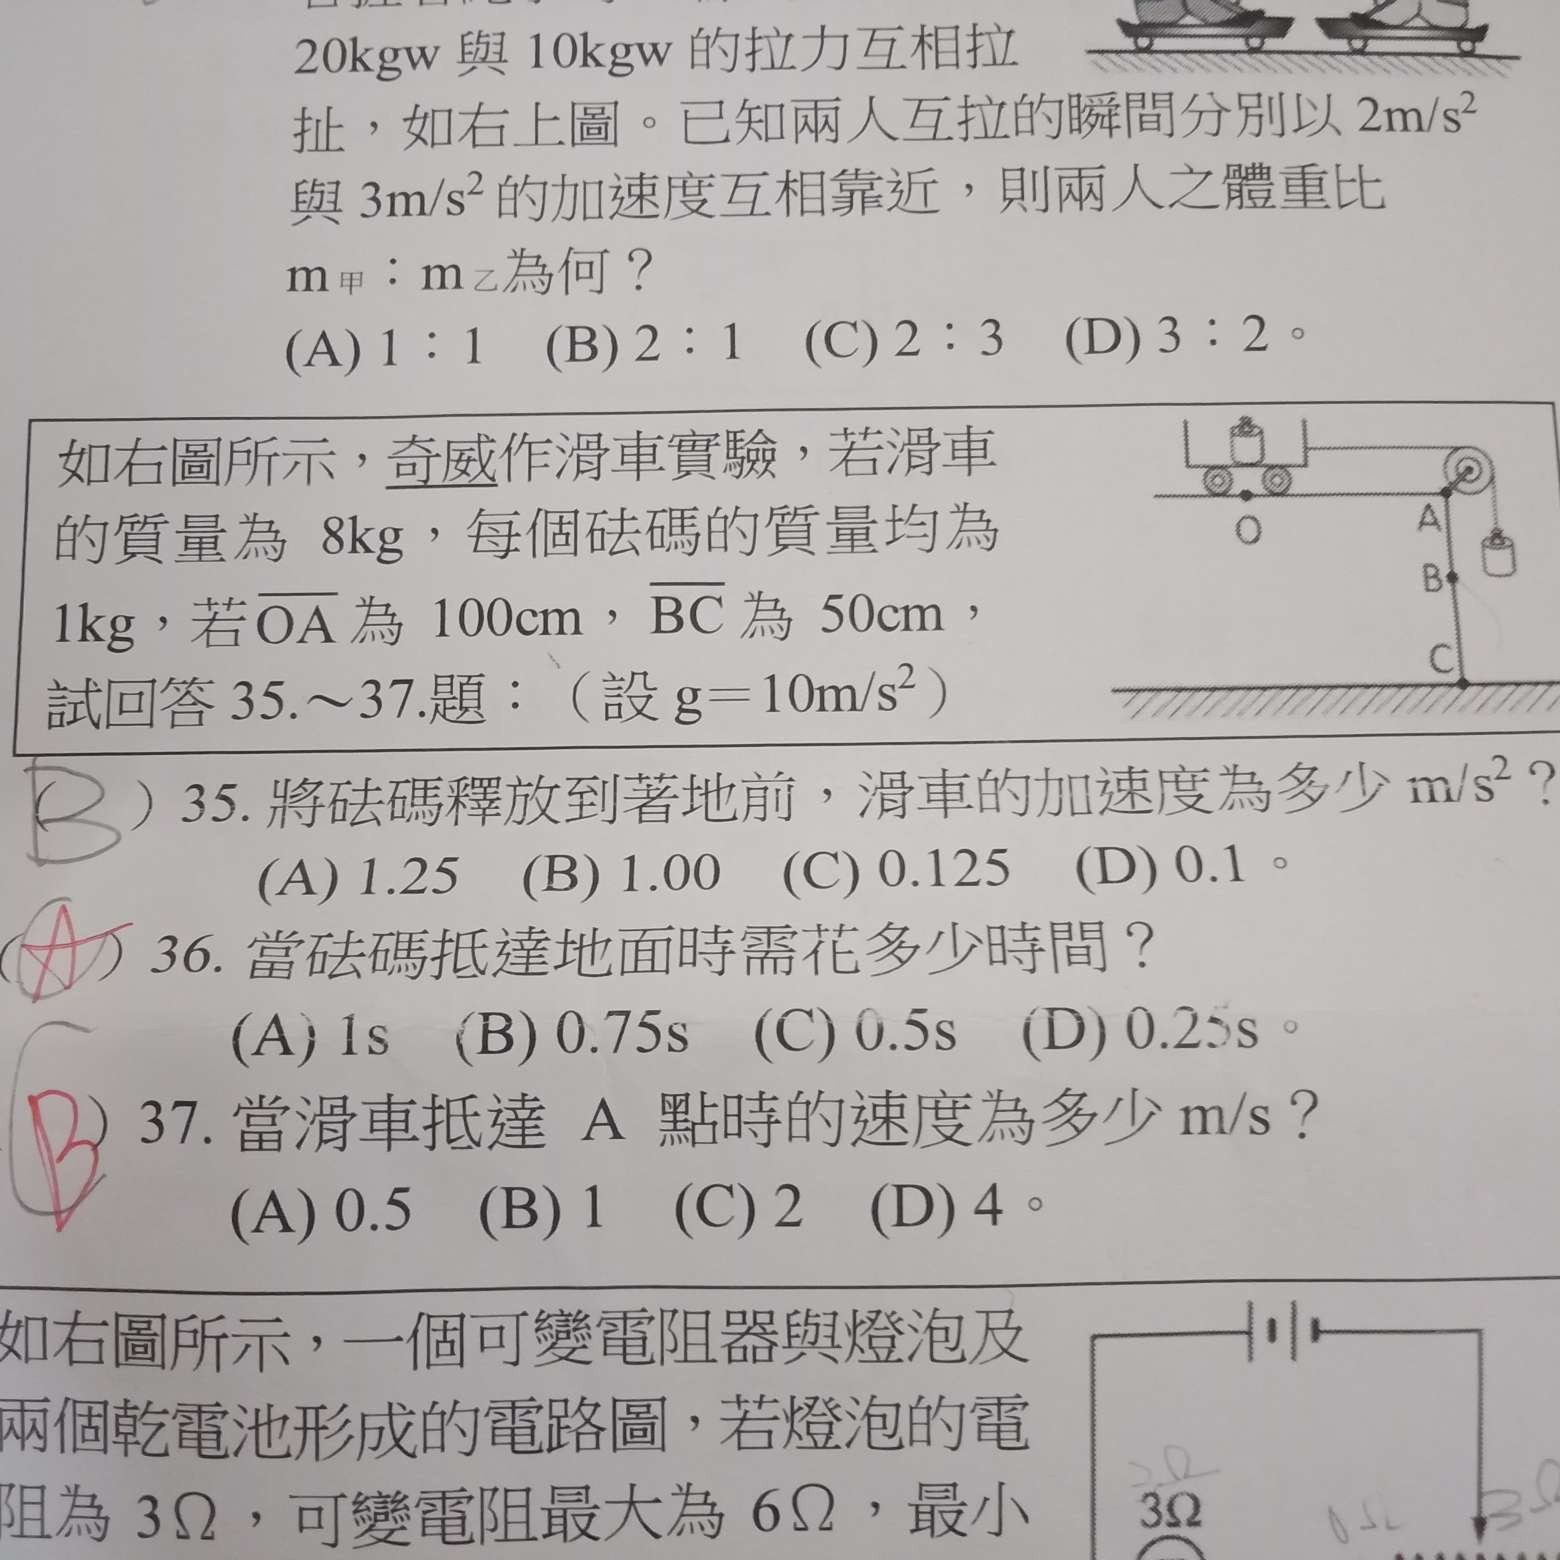 20kgw 與 10kgw 的拉力互相拉
扯，如右上圖。已知兩人互拉的瞬間分別以 2m/s²
與 3m/s² 的加速度互相靠近，則兩人之體重比
m甲：m乙為何？
(A) 1：1 (B) 2：1 (C) 2：3 (D) 3：2。
如右圖所示，奇威作滑車實驗，若滑車
的質量為 8kg，每個砝碼的質量均為
1kg，若 O̅A̅ 為 100cm，B̅C̅ 為 50cm，
試回答 35.～37.題：（設 g＝10m/s²）
O
A
B
C
(B) 35. 將砝碼釋放到著地前，滑車的加速度為多少 m/s²？
(A) 1.25 (B) 1.00 (C) 0.125 (D) 0.1。
(A) 36. 當砝碼抵達地面時需花多少時間？
(A) 1s (B) 0.75s (C) 0.5s (D) 0.25s。
(B) 37. 當滑車抵達 A 點時的速度為多少 m/s？
(A) 0.5 (B) 1 (C) 2 (D) 4。
如右圖所示，一個可變電阻器與燈泡及
兩個乾電池形成的電路圖，若燈泡的電
阻為 3Ω，可變電阻最大為 6Ω，最小
3Ω